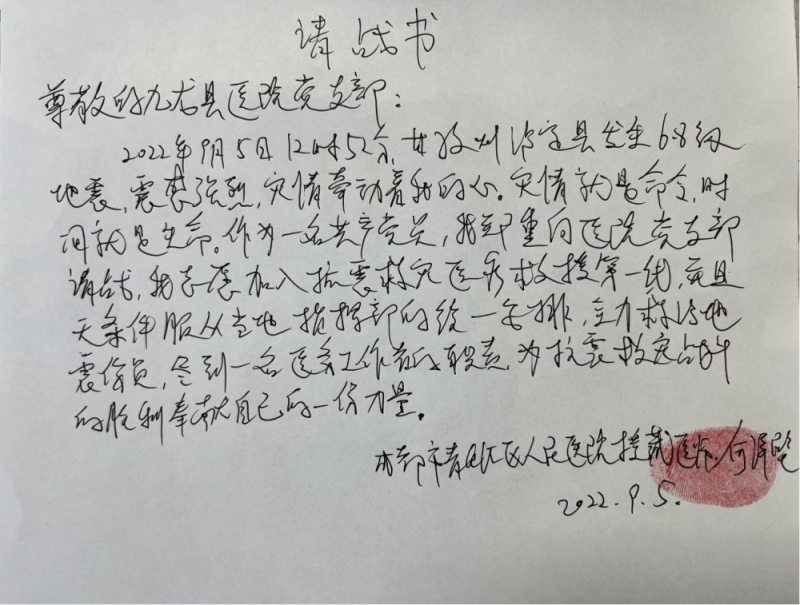 请战书
尊敬的九龙县医院党支部：
2022年9月5日12时52分，甘孜州泸定县发生6.8级
地震，震感强烈，灾情牵动着我的心。灾情就是命令，时
间就是生命。作为一名共产党员，我郑重向医院党支部
请战，我志愿加入抗震救灾医疗救援第一线，并且
无条件服从当地指挥部的统一安排，全力救治地
震伤员，尽到一名医务工作者的职责，为抗震救灾战斗
的胜利奉献自己的一份力量。
成都市青白江区人民医院援藏医生
2022.9.5.